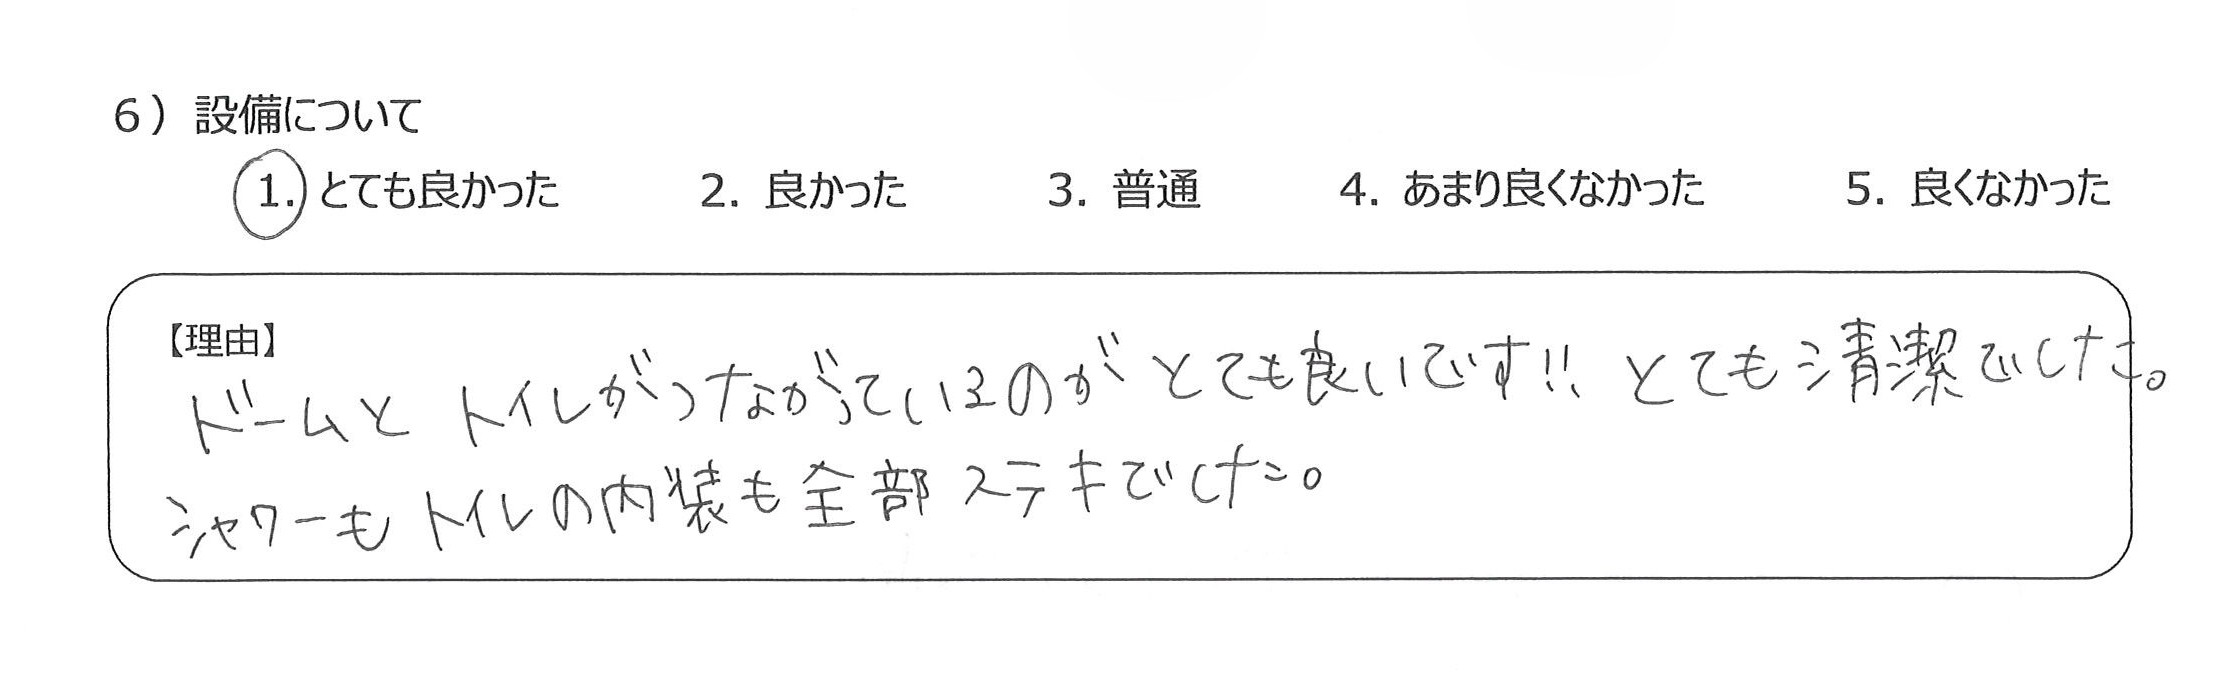 6）設備について
1. とても良かった 2. 良かった 3. 普通 4. あまり良くなかった 5. 良くなかった
【理由】
ドームとトイレがつながっているのがとても良いです!! とても清潔でした。
シャワーもトイレの内装も全部ステキでした。